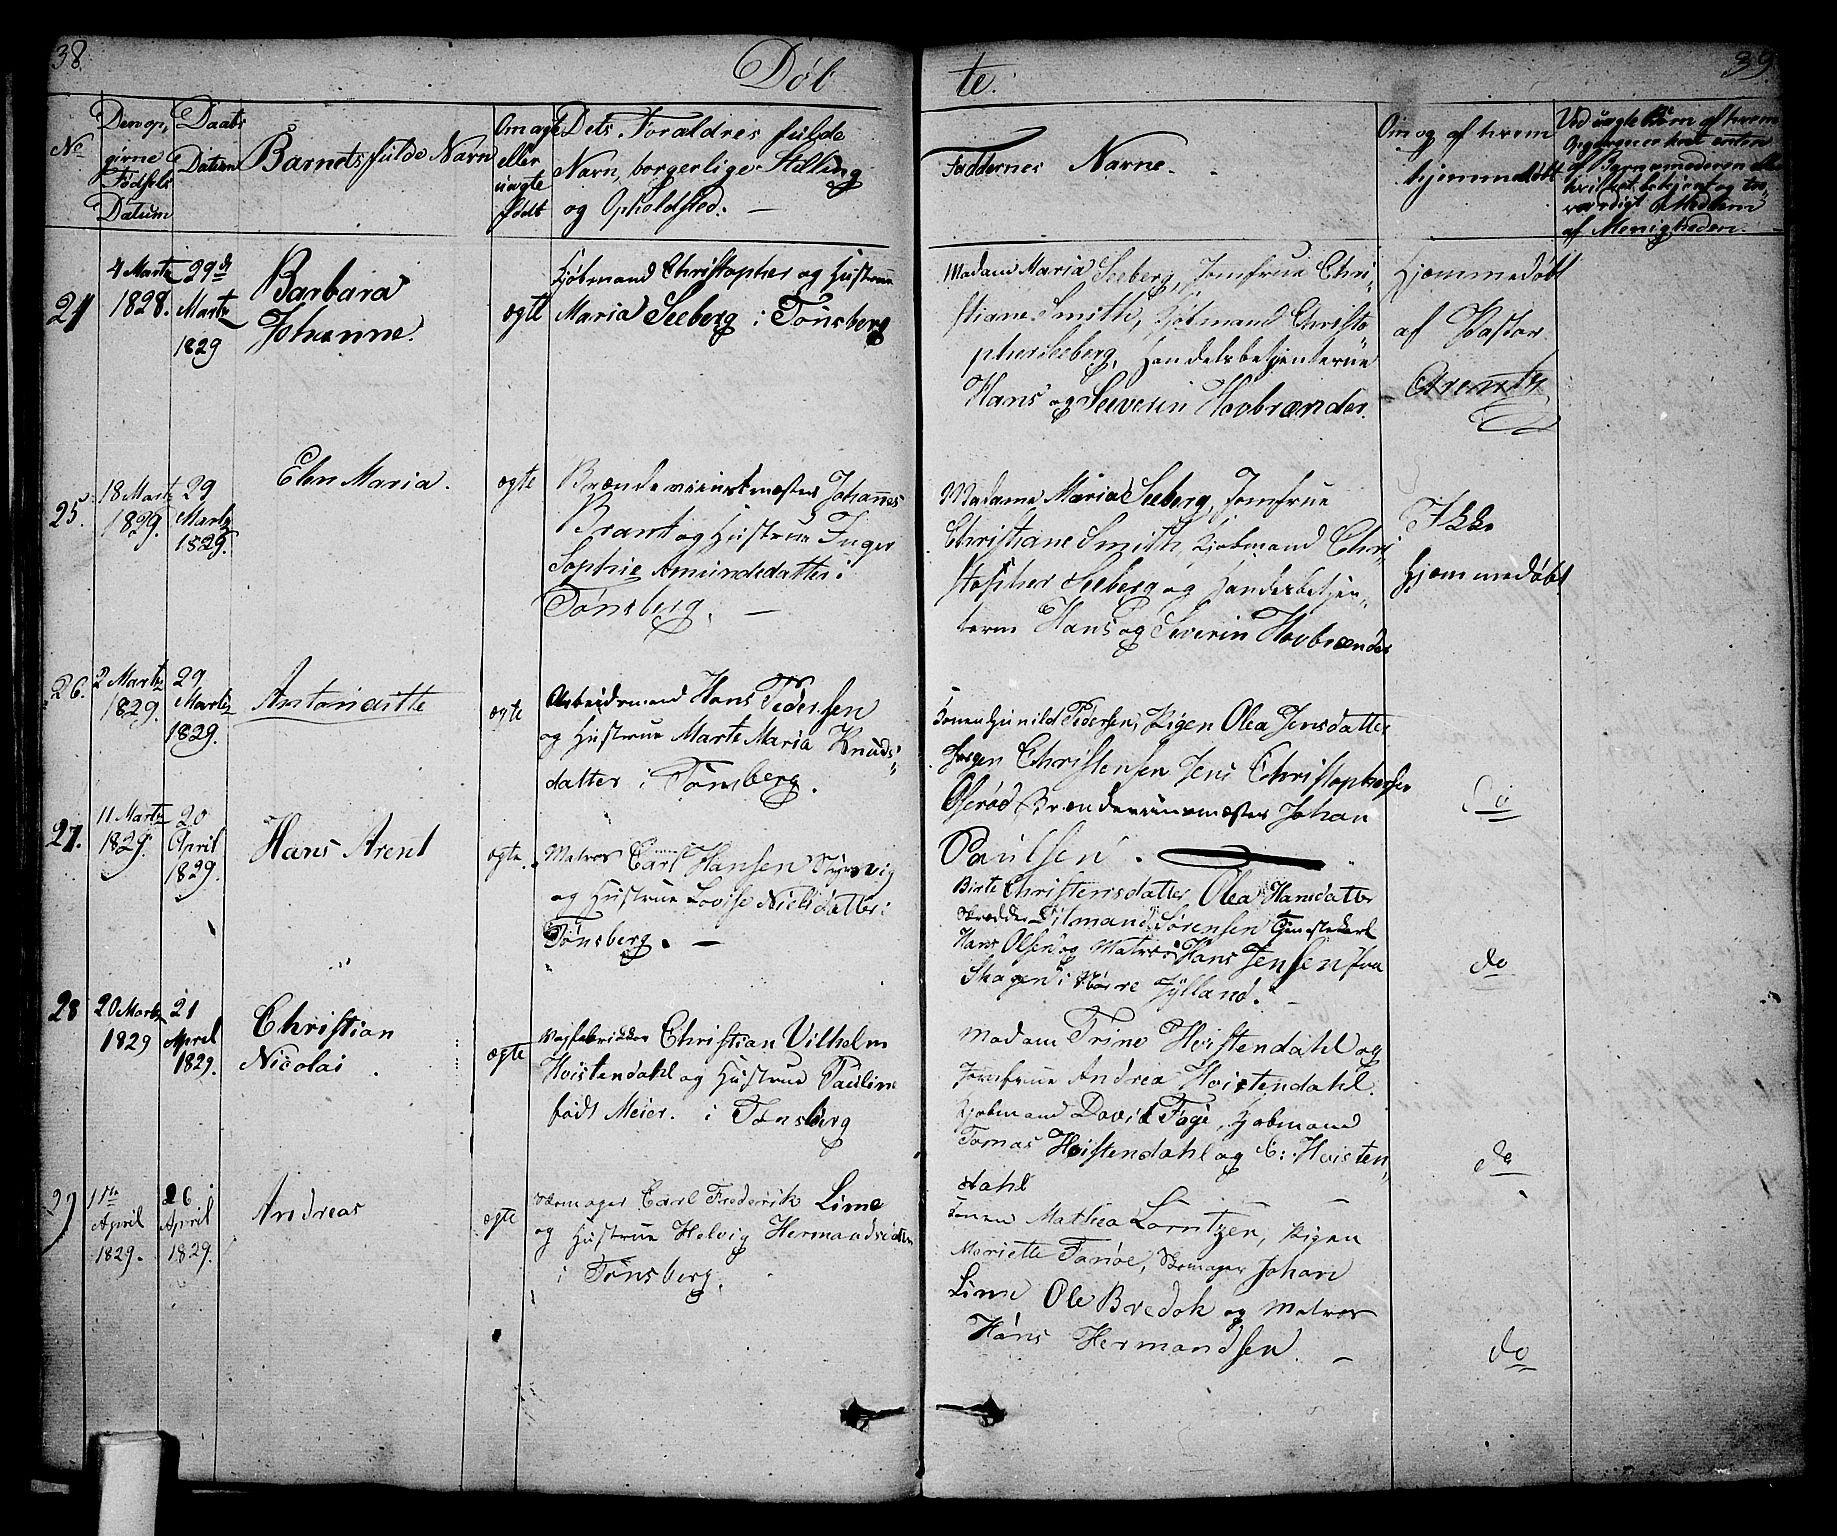 38.
Døb
te.
39
No
Den op,
girne
Fødsels
Datum
Daabs
Datum
Barnets fulde Navn
Om ægte
eller
uægte
født
Dets Foraldres fulde
Navn, borgerlige Stilling
og Opholdsted. —
Faddernes Navne.
Om og af hvem
hjemmedøbt
Ved uægte Børn af hvem
af Barnemoderen
af Menigheden.
24
4 Martz
1828.
29de
Martz
1829
Barbara
Johanne.
ægte
Kjøbmand Christopher og Hustrue
Maria Seeberg i Tønsberg
Madam Maria Seeberg, Jomfrue Chri,
stiane Smith, Kjøbmand Christo
pher Seeberg, Handelsbetjenterne
Hans og Severin Hovbrænder.
Hjemmedøbt
af Pastor
Arentz
25.
18 Martz
1829.
29
Martz
1829.
Elen Maria.
ægte
Brændeviinsmester Johannes
Brant og Hustrue Inger
Sophie Amundsdatter i
Tønsberg. —
Madame Maria Seeberg, Jomfrue
Christiane Smith, Kjøbmand Chri,
stopher Seeberg og Handesbetjen,
terne Hans og Severin Hovbrænder
Ikke
Hjemmedøbt
26.
2 Martz
1829.
29
Martz
1829.
Antonette
ægte
Arbeidsmand Hans Pedersen
og Hustrue Marte Maria Knuds,
datter i Tønsberg.
Konen Gunild Pedersen, Pigen Olea Jensdatter
Jørgen Christensen Jens Christophersen
Ofsrød Brændeviinsmester Johan
Paulsen.
do
27.
11 Martz
1829.
20
April
1829.
Hans Arent
ægte.
Matros Carl Hansen
og Hustrue Lovise Nielsdatter i
Tønsberg. —
Birte Christensdatter, Olea Hansdatter
Skrædder Tilmand Sørensen Tjenestekarl
Hans Olsen og Matros Hans Jensen fra
Skagen i Nørre Jylland. —
do
28
20 Martz
1829
21
April
1829.
Christian
Nicolai.
ægte
Christian Vilhelm
Hvistendahl og Hustrue Pauline
født Meier. i Tønsberg
Madam Trine Hvistendahl og
Jomfrue Andrea Hvistendahl.
Kjøbmand David Faye, Kjøbmand
Tomas Hvistendahl og C: Hvisten,
dahl —
do
29
1ste
April
1829.
26
April
1829.
Andreas
ægte
Skomager Carl Frederik Lime
og Hustrue Helvig Hermandsdatter
i Tønsberg.
Konen Mathea Lorntzen, Pigen
Mariette Farøe, Skomager Johan
Lime Ole Bredok og Matros
Hans Hermandsen. —
do